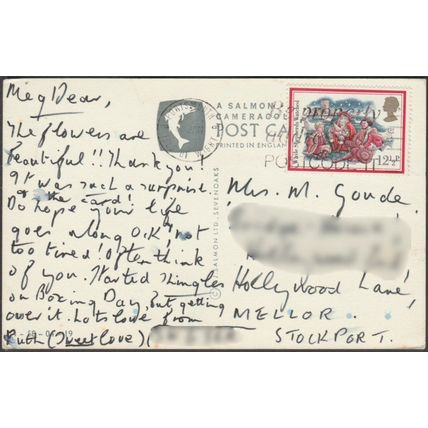 Meg Dear,
The flowers are
beautiful!! Thank you!
It was such a surprise
& the card!
Do hope your life
goes along O.K. & not
too tired! Often think
of you. Started shingles
on Boxing Day, but getting
over it. Lots love from
Ruth (Sweetlove)(
A SALMON
CAMERACOLOUR
POST CA
PRINTED IN ENGLAN
© J. SALMON LTD., SEVENOAKS
12½P
Be properly
POSTCODE IT
Mrs. M. Goude.
Hollywood Lane,
MELLOR.
STOCKPORT.